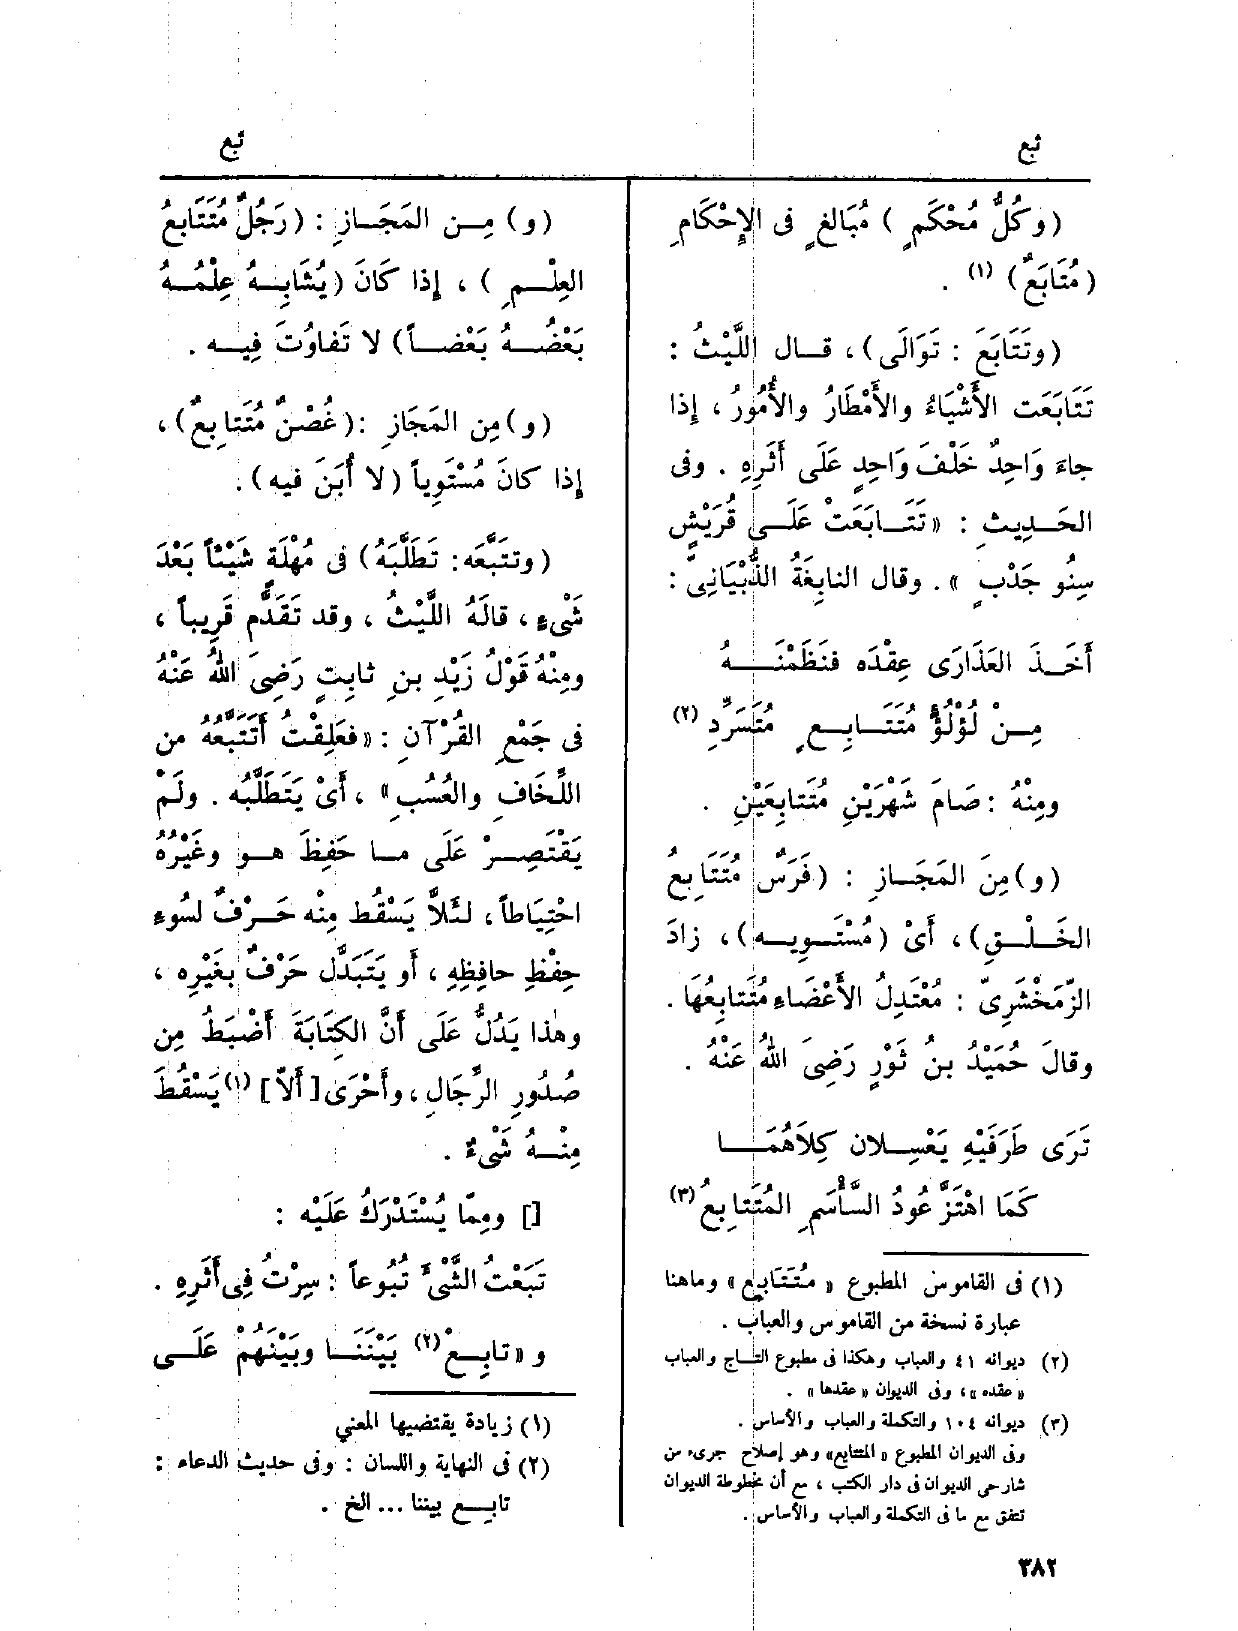 تبع
تبع
(وكُلُّ مُحْكَمٍ) مُبَالغٍ فى الإِحْكَامِ
(مُتَابَعٌ) (١) .
(وتَتَابَعَ : تَوَالَى)، قــال اللَّيْثُ :
تَتَابَعَت الأَشْيَاءُ والأَمْطَارُ والأُمُورُ ، إذا
جاءَ وَاحِدٌ خَلْفَ وَاحِدٍ عَلَى أَثَرِهِ . وفى
الحَـدِيثِ : « تَتَـابَعَتْ عَلَـى قُرَيْشٍ
سِنُو جَدْبٍ » . وقال النابِغَةُ الذُّبْيَانِىُّ :
أَخَـذَ العَذَارَى عِقْدَه فنَظَمْنَـــهُ
مِـنْ لُؤْلُؤٍ مُتَتَـابِـعٍ مُتَسَرِّدِ (٢)
ومِنْهُ : صَامَ شَهْرَيْنِ مُتَتابِعَيْنِ .
(و) مِنَ المَجَـازِ : (فَرَسٌ مُتَتَابِعُ
الخَـلْـقِ)، أَىْ (مُسْتَـوِيـه)، زادَ
الزَّمَخْشَرِىّ : مُعْتَدِلُ الأَعْضَاءِ مُتَتابِعُهَا .
وقالَ حُمَيْدُ بنُ ثَوْرٍ رَضِىَ اللهُ عَنْهُ .
تَرَى طَرَفَيْهِ يَعْسِـلان كِلاَهُمَــا
كَمَا اهْتَزَّ عُودُ السَّأْسَمِ المُتَتابِعُ (٣)
(١) فى القاموس المطبوع « مُتَتَابِع » وماهنا
عبارة نسخة من القاموس والعباب .
(٢) ديوانه ٤١ والعباب وهكذا فى مطبوع التـاج والعباب
« عقده »، وفى الديوان « عقدها » .
(٣) ديوانه ١٠٤ والتكملة والعباب والأساس .
وفى الديوان المطبوع « المتتايع» وهو إصلاح جرىء من
شارحى الديوان فى دار الكتب ، مع أن مخطوطة الديوان
تتفق مع ما فى التكملة والعباب والأساس .
٣٨٢
(و) مِـن المَجَـازِ : (رَجُلٌ مُتَتَابِعُ
العِلْـمِ) ، إذا كَانَ (يُشَابِـهُ عِلْمُـهُ
بَعْضُـهُ بَعْضـاً) لا تَفاوُتَ فِيـه .
(و) مِن المَجَازِ : (غُصْنٌ مُتَتابِعٌ) ،
إذا كانَ مُسْتَوِياً (لا أُبَنَ فيه) .
(وتتَبَّعَه : تَطَلَّبَهُ) فى مُهْلَةٍ شَيْئاً بَعْدَ
شَىْءٍ ، قالَهُ اللَّيْثُ ، وقد تَقَدَّم قَرِيباً ،
ومِنْهُ قَوْلُ زَيْدِ بنِ ثابِتٍ رَضِىَ اللهُ عَنْهُ
فى جَمْعِ القُرْآنِ : « فعَلِقْتُ أَتَتَبَّعُهُ من
اللِّخَافِ والعُسُبِ» ، أَىْ يَتَطَلَّبُه . ولَمْ
يَقْتَصِـرْ عَلَى مـا حَفِظَ هــو وغَيْرُهُ
احْتِيَاطاً ، لئَلاَّ يَسْقُطَ مِنْه حَـرْفٌ لسُوءِ
حِفْظِ حافِظِهِ ، أو يَتَبَدَّل حَرْفٌ بغَيْرِه ،
وهٰذا يَدُلُّ عَلَى أَنَّ الكِتَابَةَ أَضْبَطُ مِن
صُدُورِ الرِّجَالِ ، وأَحْرَى [ أَلاَّ ] (١) يَسْقُطَ
مِنْـهُ شَىْءٌ .
[] ومِمّا يُسْتَدْرَكُ عَلَيْه :
تَبَعْتُ الشَّىْءَ تُبُوعاً : سِرْتُ فِى أَثَرِهِ .
و « تابِـعْ (٢) بَيْنَنَـا وبَيْنَهُمْ عَلَـى
(١) زيادة يقتضيها المعني
(٢) فى النهاية واللسان : وفى حديث الدعاء :
تابـع بيننا ... الخ .